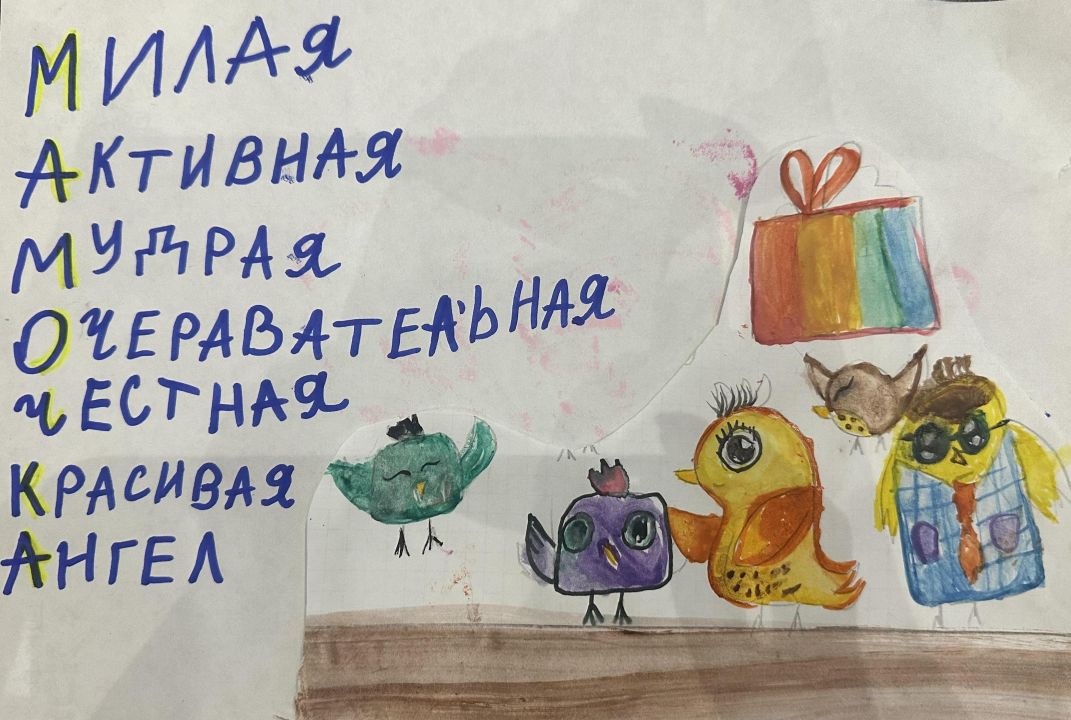 МИЛАЯ
АКТИВНАЯ
МУДРАЯ
ОЧЕРАВАТЕЛЬНАЯ
ЧЕСТНАЯ
КРАСИВАЯ
АНГЕЛ